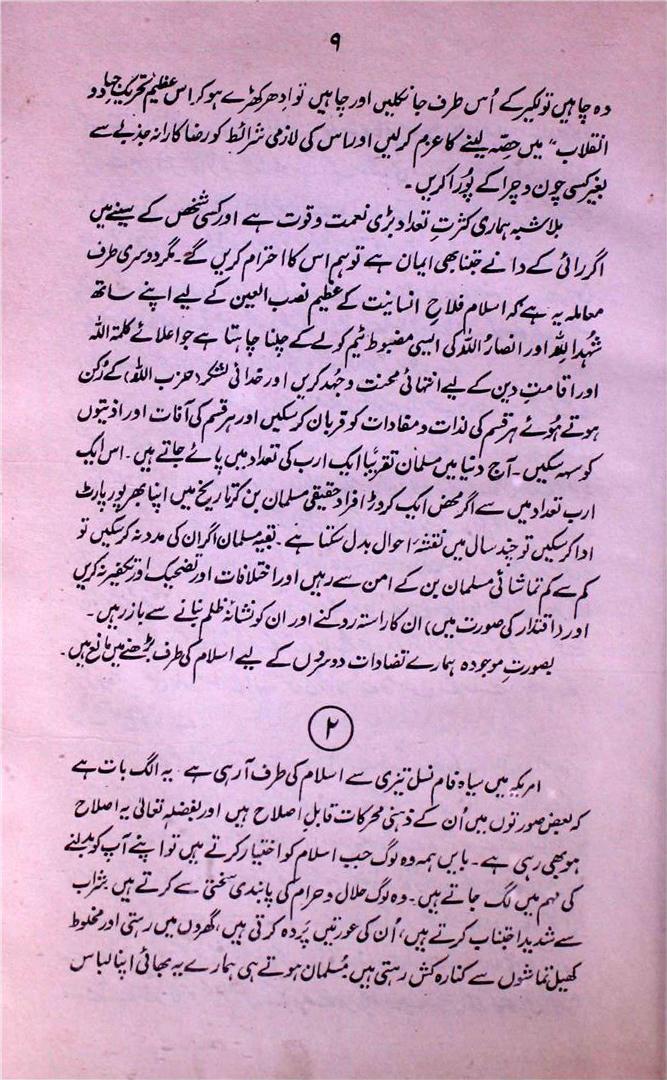 ۹
وہ چاہیں تو لکیر کے اُس طرف جا نکلیں اور چاہیں تو ادھر کھڑے ہو کر اس عظیم تحریکِ جہاد و
انقلاب“ میں حصّہ لینے کا عزم کر لیں اور اس کی لازمی شرائط کو رضا کارانہ جذبے سے
بغیر کسی چون و چرا کے پُورا کریں۔
بلاشبہ ہماری کثرتِ تعداد بڑی نعمت و قوت ہے اور کسی شخص کے سینے میں
اگر رائی کے دانے جتنا بھی ایمان ہے تو ہم اس کا احترام کریں گے۔ مگر دوسری طرف
معاملہ یہ ہے کہ اسلام فلاحِ انسانیت کے عظیم نصب العین کے لیے اپنے ساتھ
شُہداِ للہ اور انصارُ اللہ کی ایسی مضبوط ٹیم کو لے کے چلنا چاہتا ہے جو اعلائے کلمۃ اللہ
اور اقامتِ دین کے لیے انتہائی محنت و جُہد کریں اور خدائی لشکر (حزب اللہ) کے رُکن
ہوتے ہُوئے ہر قسم کی لذات و مفادات کو قربان کر سکیں اور ہر قسم کی آفات اور اذیتوں
کو سہہ سکیں۔ آج دنیا میں مسلمان تقریباً ایک ارب کی تعداد میں پائے جاتے ہیں۔ اس ایک
ارب تعداد میں سے اگر محض ایک کروڑ افراد حقیقی مسلمان بن کر تاریخ میں اپنا بھرپور پارٹ
ادا کر سکیں تو چند سال میں نقشۂ احوال بدل سکتا ہے۔ بقیہ مسلمان اگر ان کی مدد نہ کر سکیں تو
کم سے کم تماشائی مسلمان بن کے امن سے رہیں اور اختلافات اور تضحیک اور تکفیر نہ کریں
اور (اقتدار کی صورت میں) ان کا راستہ روکنے اور ان کو نشانۂ ظلم بنانے سے باز رہیں۔
بصورتِ موجودہ ہمارے تضادات دوسروں کے لیے اسلام کی طرف بڑھنے میں مانع ہیں۔
۲
امریکہ میں سیاہ فام نسل تیزی سے اسلام کی طرف آ رہی ہے۔ یہ الگ بات ہے
کہ بعض صورتوں میں اُن کے ذہنی محرکات قابلِ اصلاح ہیں اور بفضلہٖ تعالیٰ یہ اصلاح
ہو بھی رہی ہے۔ بایں ہمہ وہ لوگ جب اسلام کو اختیار کرتے ہیں تو اپنے آپ کو بدلنے
کی مہم میں لگ جاتے ہیں۔ وہ لوگ حلال و حرام کی پابندی سختی سے کرتے ہیں۔ شراب
سے شدید اجتناب کرتے ہیں، اُن کی عورتیں پردہ کرتی ہیں، گھروں میں رہتی اور مخلوط
کھیل تماشوں سے کنارہ کش رہتی ہیں۔ مُسلمان ہوتے ہی ہمارے یہ بھائی اپنا لباس